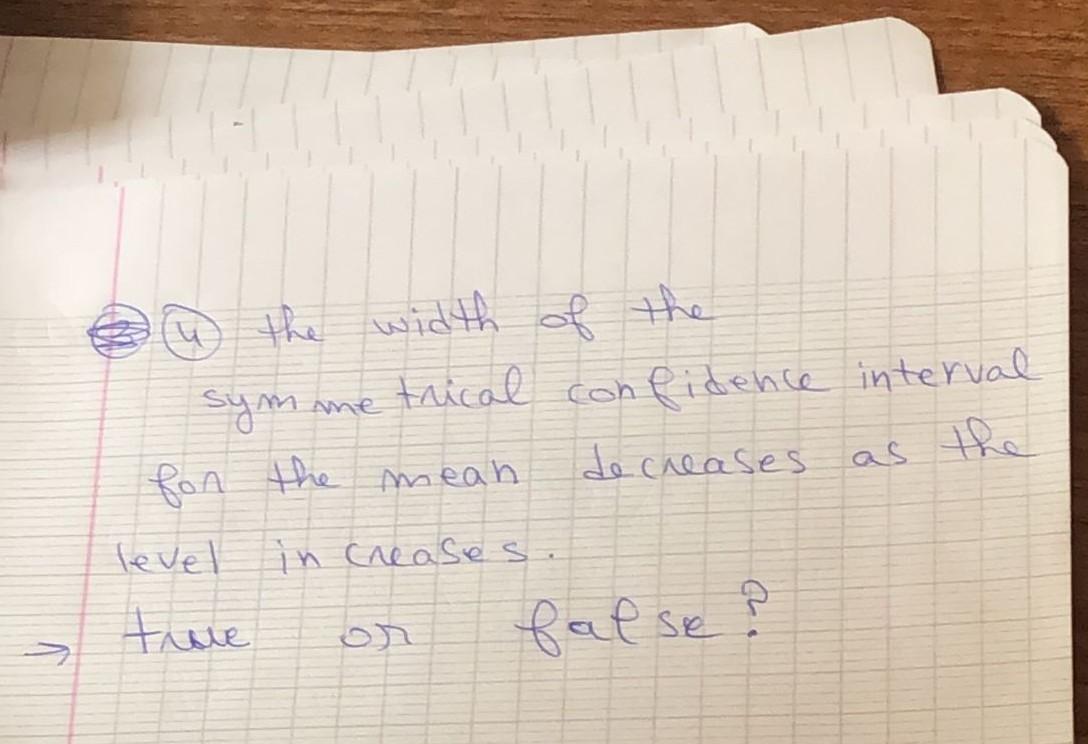 ④ the width of the
symmetrical confidence interval
for the mean decreases as the
level increases.
→ true or false?